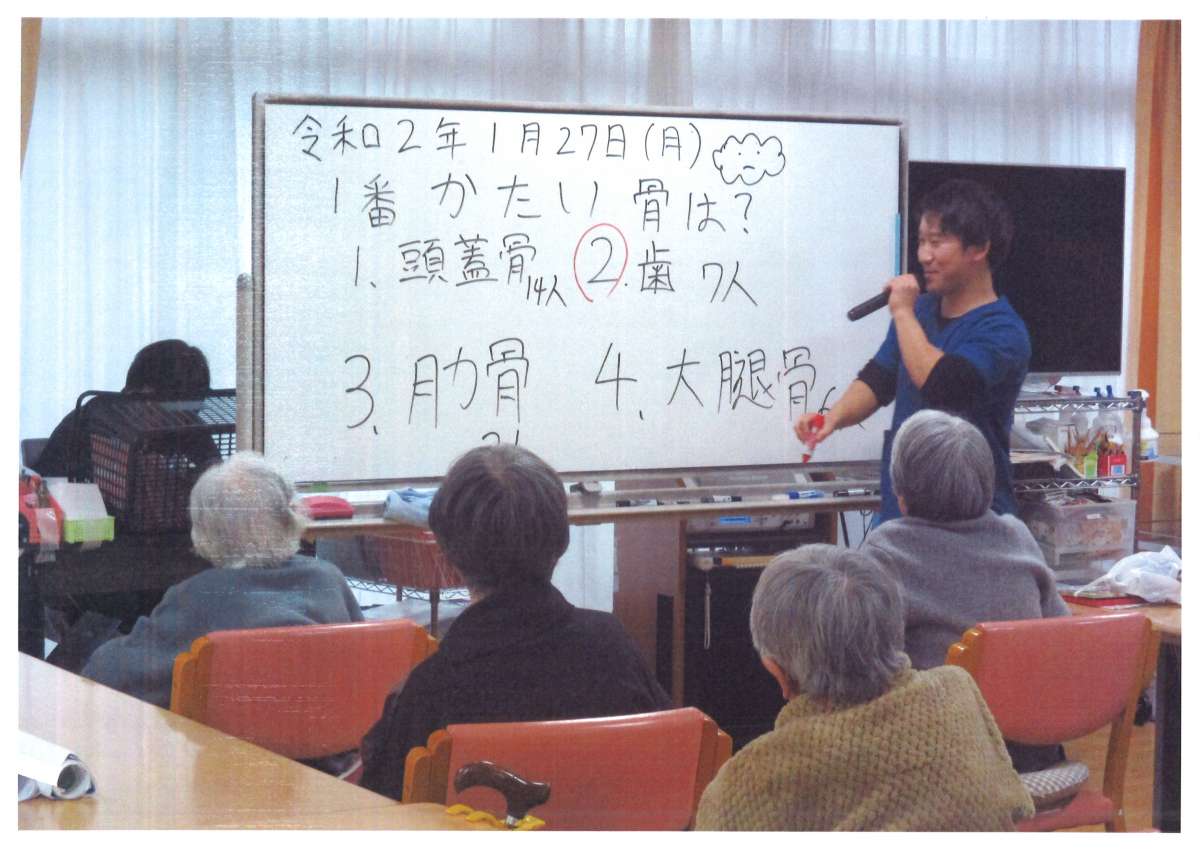 令和2年1月27日(月)
1番かたい骨は?
1.頭蓋骨14人 2.歯 7人
3.肋骨 4.大腿骨